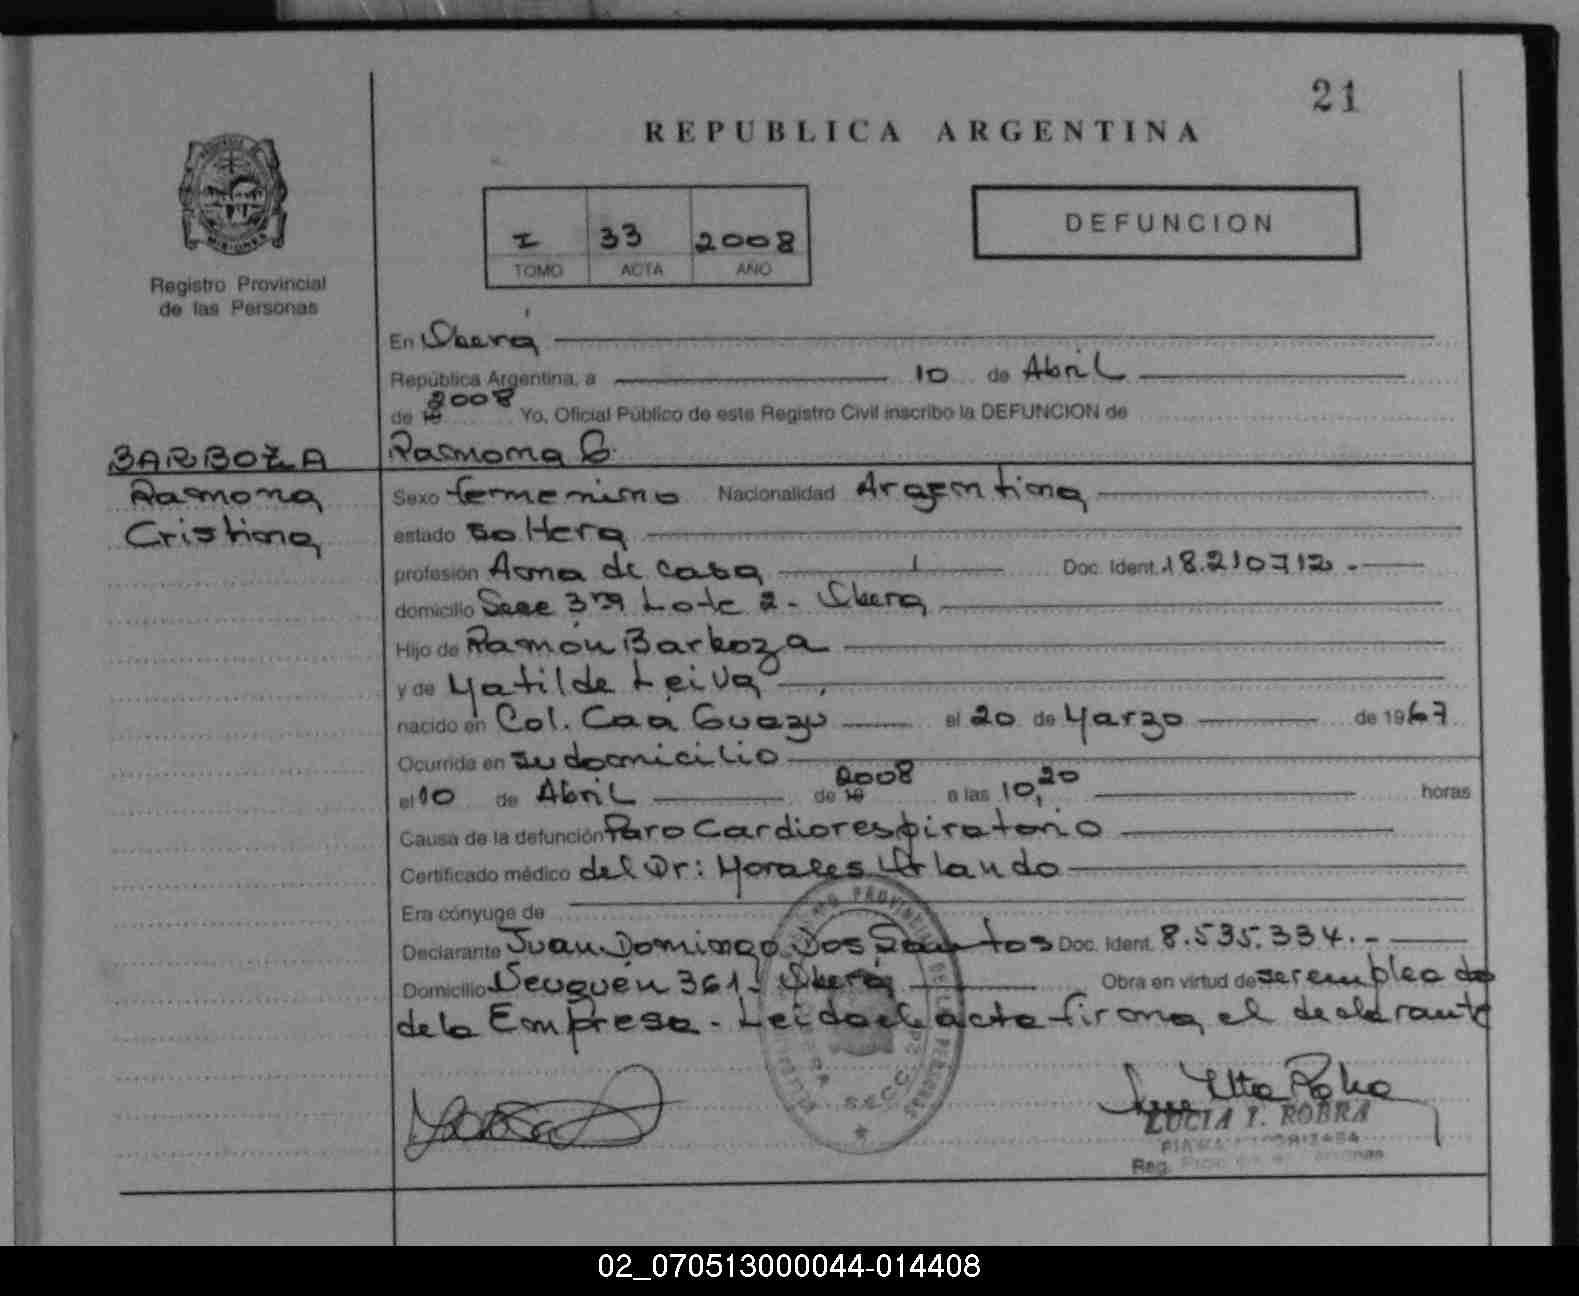 21
REPUBLICA ARGENTINA
I 33 2008
TOMO ACTA AÑO
DEFUNCION
Registro Provincial
de las Personas
En Oberá
República Argentina, a 10 de Abril
de 19 2008 Yo, Oficial Público de este Registro Civil inscribo la DEFUNCION de
BARBOZA
Ramona
Cristina
Ramona C.
Sexo femenino Nacionalidad Argentina
estado soltera
profesión Ama de casa Doc. Ident. 18.210712.-
domicilio Secc 3ra Lote 2 - Oberá
Hijo de Ramón Barboza
y de Matilde Leiva
nacido en Col. Caá Guazú el 20 de Marzo de 1967
Ocurrida en su domicilio
el 10 de Abril de 19 2008 a las 10,20 horas
Causa de la defunción Paro Cardiorespiratorio
Certificado médico del Dr: Morales Orlando
Era cónyuge de
Declarante Juan Domingo Dos Santos Doc. Ident. 8.535.334.-
Domicilio Neuquén 361- Oberá Obra en virtud de ser emplea do
de la Empresa. Leida el acta firma el declarante
PROVINCIAL DE LAS PERSONAS
SECC. 2
LUCIA I. ROBRA
Reg.
02_070513000044-014408